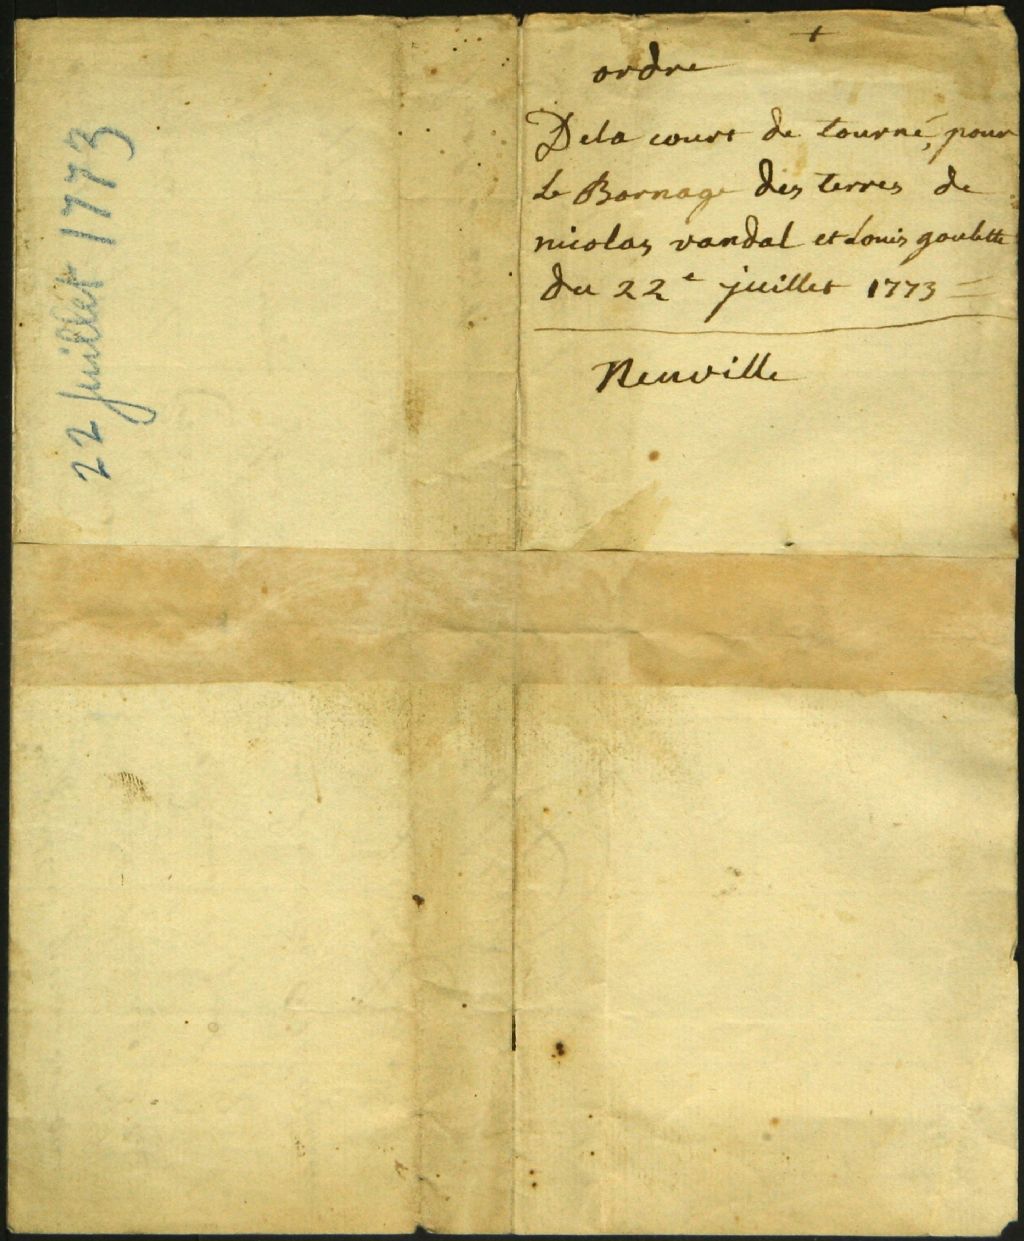 22 Juillet 1773
+
ordre
Dela court de tourné, pour
Le Bornage des terres de
nicolas vandal et Louis goulette
du 22e juillet 1773 =
Neuville